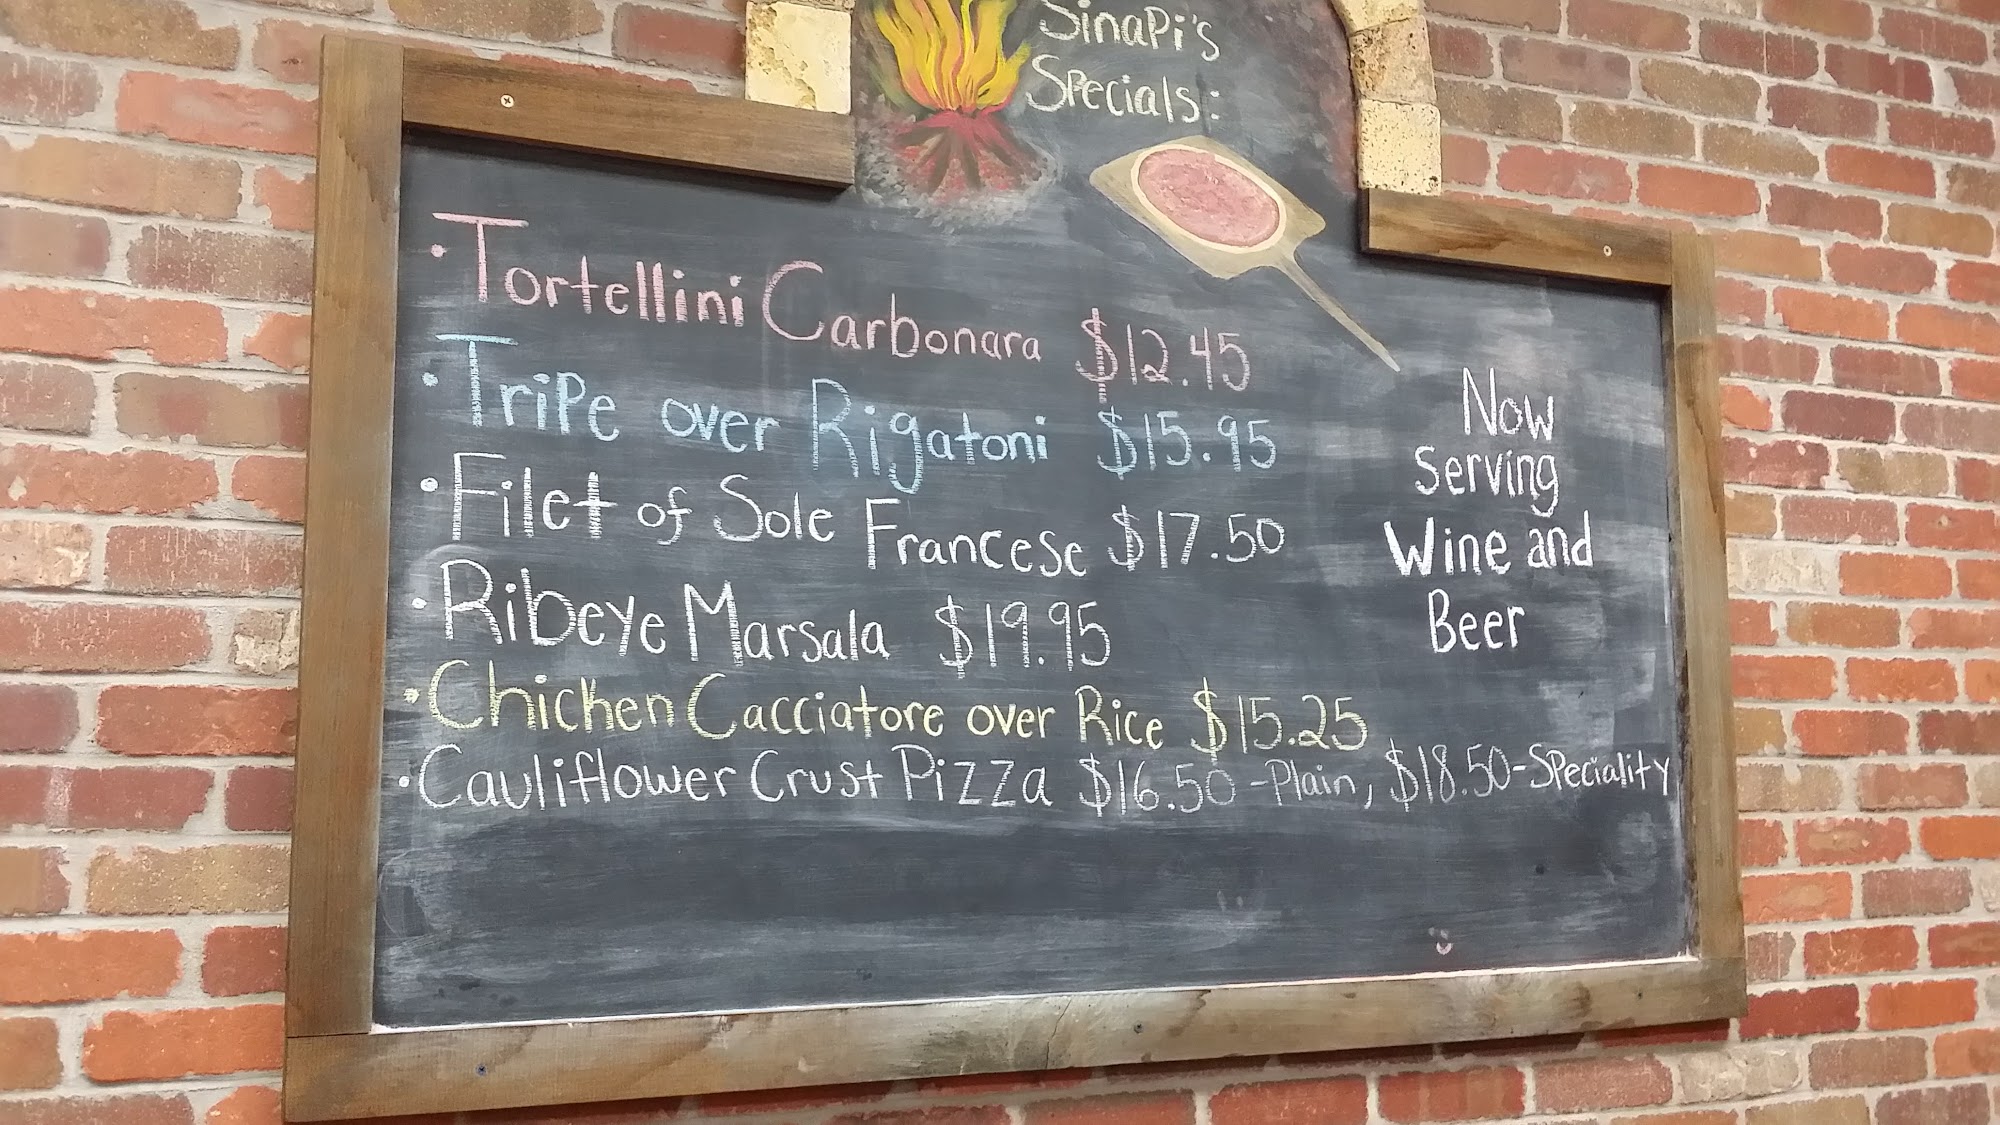 SinaPi's
Specials:
•Tortellini Carbonara $12.45
•Tripe over Rigatoni $15.95
•Filet of Sole Francese $17.50
•Ribeye Marsala $19.95
•Chicken Cacciatore over Rice $15.25
•Cauliflower Crust Pizza $16.50-Plain, $18.50-Speciality
Now
Serving
Wine and
Beer